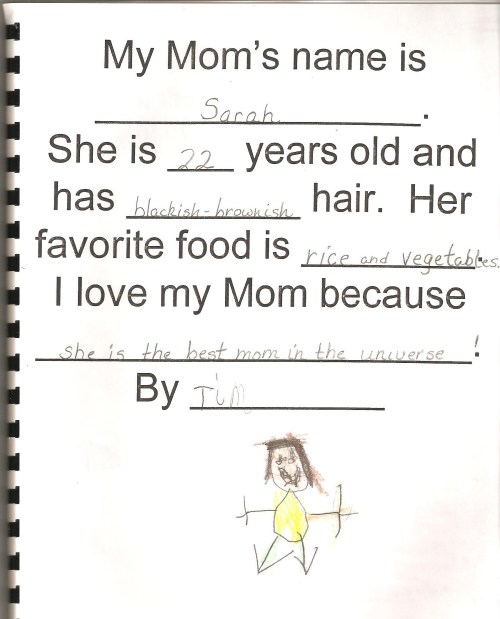 My Mom's name is
Sarah.
She is 22 years old and
has blackish-brownish hair. Her
favorite food is rice and vegetables.
I love my Mom because
she is the best mom in the universe!
By Tim